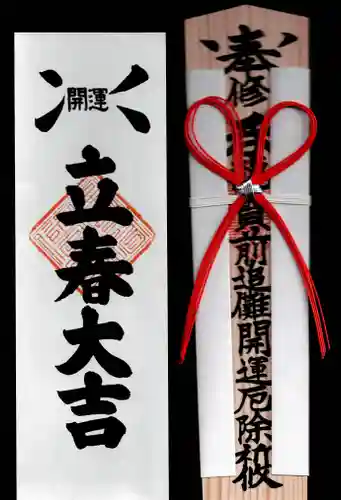 開運
立春大吉
奉修
前追儺開運厄除祈攸